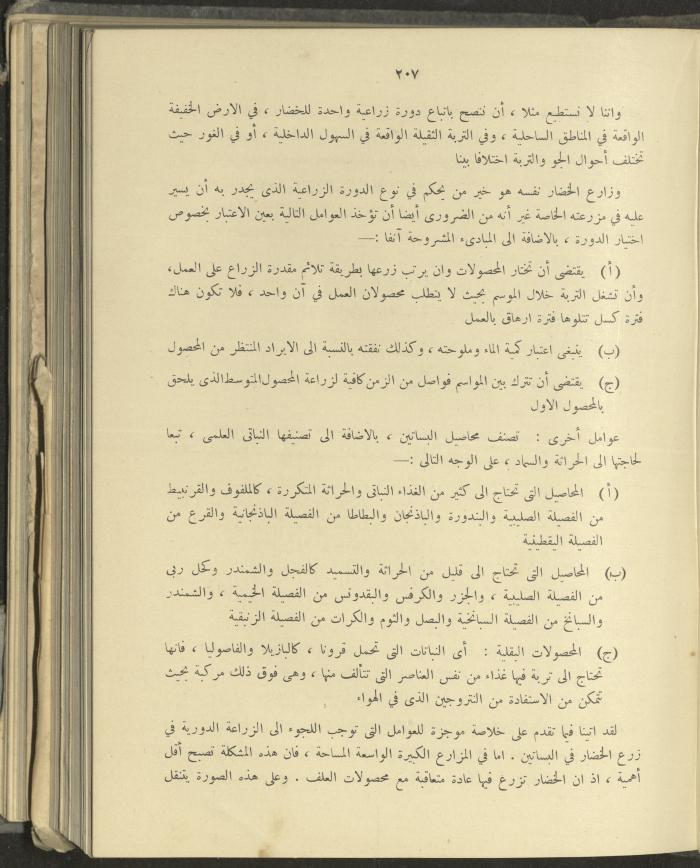 ٢٠٧
واننا لا نستطيع مثلا ، أن ننصح باتباع دورة زراعية واحدة للخضار ، في الارض الخفيفة
الواقعة في المناطق الساحلية ، وفي التربة الثقيلة الواقعة في السهول الداخلية ، أو في الغور حيث
تختلف أحوال الجو والتربة اختلافا بينا
وزارع الخضار نفسه هو خير من يحكم في نوع الدورة الزراعية الذى يجدر به أن يسير
عليه في مزرعته الخاصة غير أنه من الضرورى أيضا أن تؤخذ العوامل التالية بعين الاعتبار بخصوص
اختيار الدورة ، بالاضافة الى المبادىء المشروحة آنفا :—
(أ) يقتضى أن تختار المحصولات وان يرتب زرعها بطريقة تلائم مقدرة الزراع على العمل،
وأن تشغل التربة خلال الموسم بحيث لا يتطلب محصولان العمل في آن واحد ، فلا تكون هناك
فترة كسل تتلوها فترة ارهاق بالعمل
(ب) ينبغى اعتبار كمية الماء وملوحته ، وكذلك نفقته بالنسبة الى الايراد المنتظر من المحصول
(ج) يقتضى أن تترك بين المواسم فواصل من الزمن كافية لزراعة المحصول المتوسط الذى يلحق
بالمحصول الاول
عوامل أخرى : تصنف محاصيل البساتين ، بالاضافة الى تصنيفها النباتى العلمى ، تبعا
لحاجتها الى الحراثة والسماد ، على الوجه التالى :—
(أ) المحاصيل التى تحتاج الى كثير من الغذاء النباتى والحراثة المتكررة ، كالملفوف والقرنبيط
من الفصيلة الصليبية والبندورة والباذنجان والبطاطا من الفصيلة الباذنجانية والقرع من
الفصيلة اليقطينية
(ب) المحاصيل التى تحتاج الى قليل من الحراثة والتسميد كالفجل والشمندر وكحل ربى
من الفصيلة الصليبية ، والجزر والكرفس والبقدونس من الفصيلة الخيمية ، والشمندر
والسبانخ من الفصيلة السبانخية والبصل والثوم والكرات من الفصيلة الزنبقية
(ج) المحصولات البقلية : أى النباتات التى تحمل قرونا ، كالبازيلا والفاصوليا ، فانها
تحتاج الى تربة فيها غذاء من نفس العناصر التى تتألف منها ، وهى فوق ذلك مركبة بحيث
تتمكن من الاستفادة من النتروجين الذى في الهواء
لقد اتينا فيما تقدم على خلاصة موجزة للعوامل التى توجب اللجوء الى الزراعة الدورية في
زرع الخضار في البساتين . اما في المزارع الكبيرة الواسعة المساحة ، فان هذه المشكلة تصبح أقل
أهمية ، اذ ان الخضار تزرع فيها عادة متعاقبة مع محصولات العلف . وعلى هذه الصورة يتنقل